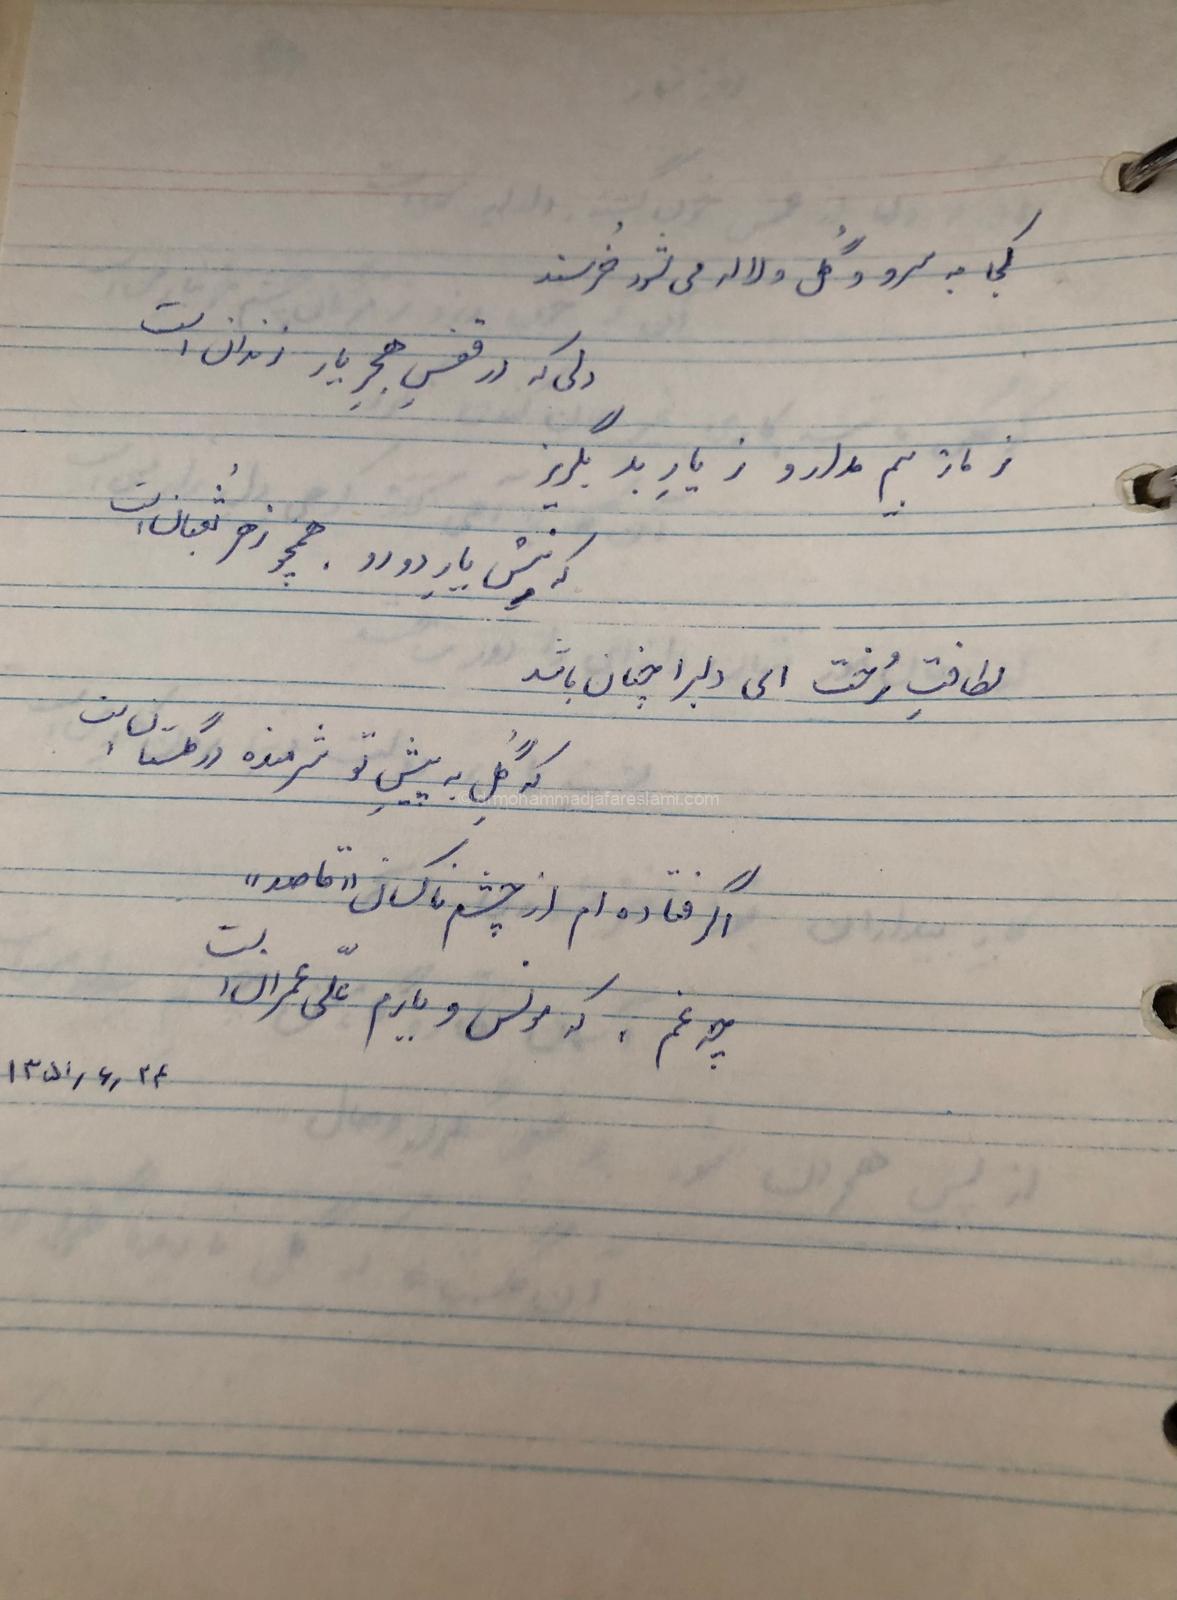 کجا به سرو و گُل و لاله می شود خُرسند
دلی که در قفسِ هجرِ یار زندانی است
ز مار بیم مدار و ز یارِ بد بگریز
که نیش یارِ دورو، همچو زهر ثُعبان است
لطافتِ رُخت ای دلبرا چنان باشد
که گُلِ به پیشِ تو شرمنده در گلستان است
mohammadjafareslami.com
اگر فتاده ام از چشم ناکسان "قاصد"
چه غم، که مونس و یارم علّی عمران است
۱۳۵۱٫۶٫۲۴